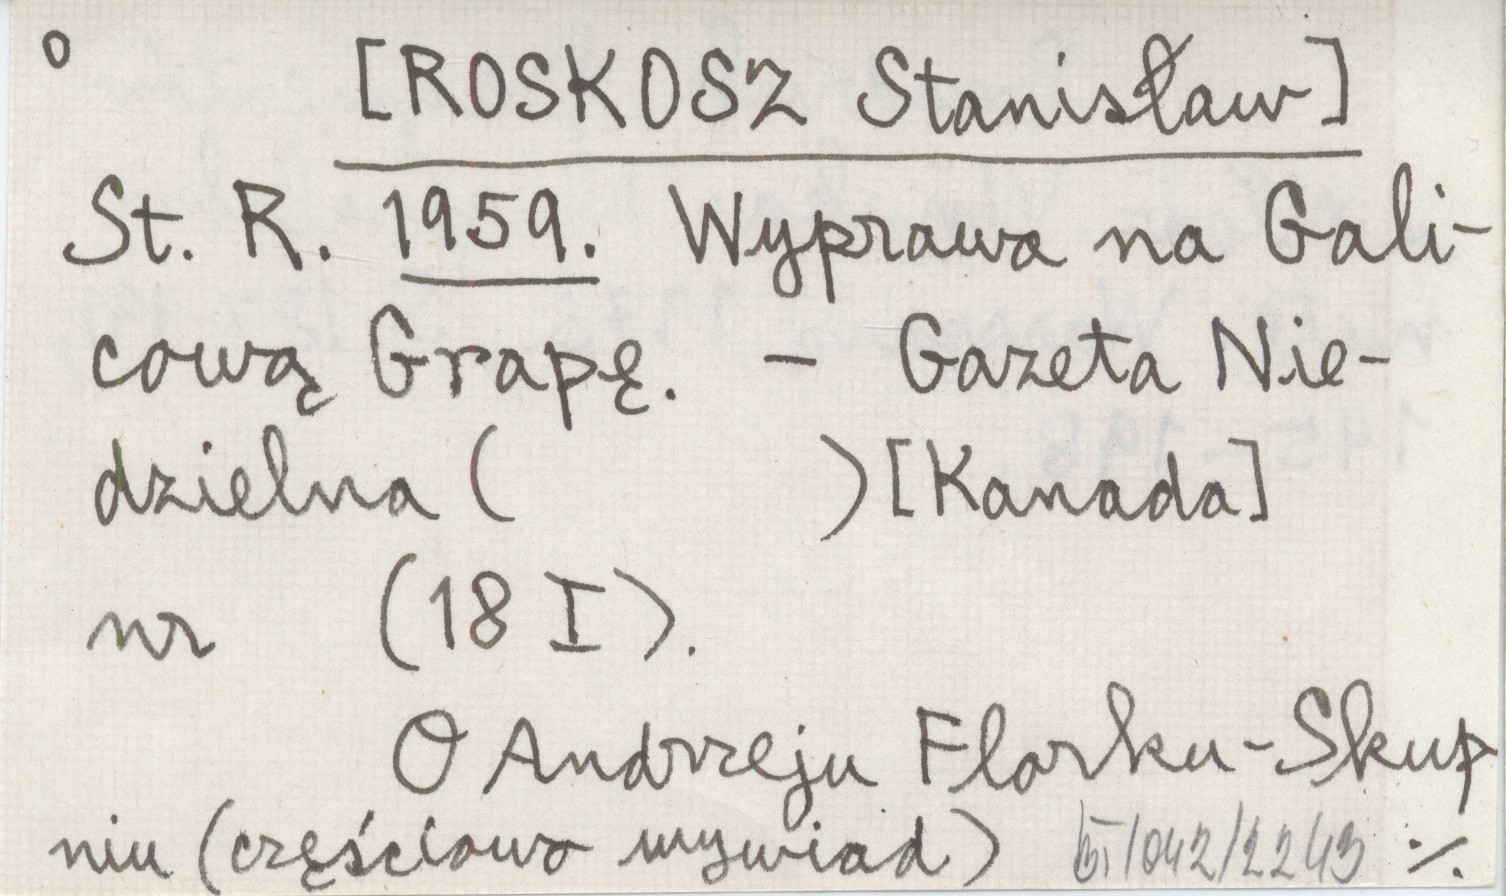 o [ROSKOSZ Stanisław]
St. R. 1959. Wyprawa na Gali-
cową Grapę. - Gazeta Nie-
dzielna ( ) [Kanada]
nr (18 I).
O Andrzeju Florku-Skup
niu (częściowo wywiad) /042/2243 ./.